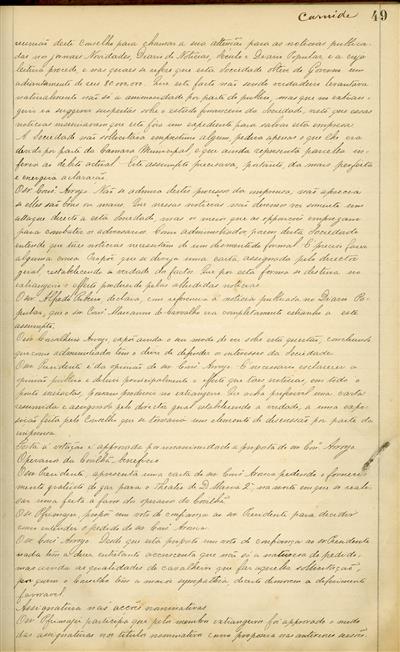 Carnide 49
reunião deste Conselho para chamar a sua attenção para as noticias publica-
das nos jornaes Novidades, Diario de Noticias, Seculo e Diario Popular e a cuja
leitura procede, e nas quaes se refere que esta Sociedade obteve do Governo um
adiantamento de reis
naturalmente não só a animosidade por parte do publico, mas que no extran-
geiro se suggiram suspeitas sobre o estado financeiro da Sociedade, visto que essas
noticias insinuavam que este fôra um expediente para salvar esta empreza.
A Sociedade não sollicitára emprestimo algum, pedira apenas o que lhe era
devido por parte da Camara Municipal, e que ainda representa parcella in-
ferior ao debito actual. Este assumpto precisava, portanto, da mais prompta
e energica aclaração.
O Snr Consº Arroyo Não se admira destes processos da imprensa, não aprecia
se elles são bons ou maus. Que nessas noticias não devemos ver somente um
ataque directo a esta Sociedade, mas o meio que a opposição emprega
para combater os adversarios. Como administrador porem desta Sociedade
entende que taes noticias necessitam de um desmentido formal. É preciso fazer
alguma cousa. Propõe que se dirija uma carta assignada pelo director
geral, restabelecendo a verdade dos factos. Que por esta forma se destrua no
extrangeiro o effeito produzido pelas alludidas noticias.
O Snr. Alfredo Ribeiro declara, com referencia á noticia publicada no Diario Po-
pular, que o snr Consº Marianno de Carvalho era completamente extranho a este
assumpto.
O Snr Conselheiro Arroyo, expõe ainda o seu modo de ver sobre esta questão, concluindo
que como administrador tem o dever de defender os interesses da Sociedade.
O Snr Presidente é da opinião do snr Consº Arroyo. É necessario esclarecer a
opinião publica e destruir principalmente o effeito que taes noticias, em todo o
ponto inexactas, possam produzir no extrangeiro. Que acha preferivel uma carta
resumida e assignada pelo director geral estabelecendo a verdade, a uma expo-
sição feita pelo Conselho que se tornaria um elemento de discussão por parte da
imprensa.
Posta á votação é approvada por unanimidade a proposta do snr Consº Arroyo.
Operario da Covilhã. Beneficio
O Snr Presidente apresenta uma carta do snr Consº Arouca pedindo o forneci-
mento gratuito de gaz para o Theatro de D. Maria 2ª na noite em que se reali-
zar uma festa a favor do operario da Covilhã.
O Snr Pflumayer, propõe um voto de confiança ao snr Presidente para decidir
como entender o pedido do snr Consº Arouca.
O Snr Consº Arroyo. Desde que está proposto um voto de confiança ao snr Presidente
nada tem a dizer entretanto accrescenta que não só a natureza do pedido,
mas ainda as qualidades do cavalheiro que faz aquella sollicitação,
por quem o Conselho tem a maior sympathia devem determinar o deferimento
favoravel.
Assignatura nas acções nominativas
O Snr Pflumayer participa que pelos membros extrangeiros foi approvado o modo
das assignaturas nos titulos nominativos como propozera nas anteriores sessões.